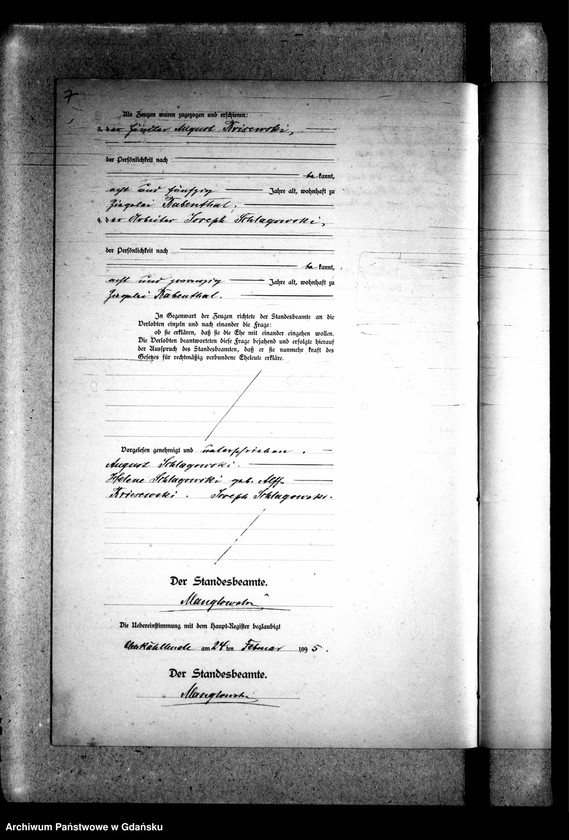 7
Als Zeugen waren zugezogen und erschienen:
3. der August Krisewski,
der Persönlichkeit nach
be kannt,
acht und fünfzig Jahre alt, wohnhaft zu
Ziegelei Kabenthal.
4. der Arbeiter Joseph Schlagowski,
der Persönlichkeit nach
be kannt,
acht und zwanzig Jahre alt, wohnhaft zu
Ziegelei Kabenthal.
In Gegenwart der Zeugen richtete der Standesbeamte an die
Verlobten einzeln und nach einander die Frage:
ob sie erklären, daß sie die Ehe mit einander eingehen wollen.
Die Verlobten beantworteten diese Frage bejahend und erfolgte hierauf
der Ausspruch des Standesbeamten, daß er sie nunmehr kraft des
Gesetzes für rechtmäßig verbundene Eheleute erkläre.
Vorgelesen genehmigt und unterschrieben.
August Schlagowski.
Helene Schlagowski geb. Alff
Krisewski. Joseph Schlagowski.
Der Standesbeamte.
Manglowski
Die Uebereinstimmung mit dem Haupt-Register beglaubigt
am 24 ten Februar 1895.
Der Standesbeamte.
Manglowski
Archiwum Państwowe w Gdańsku